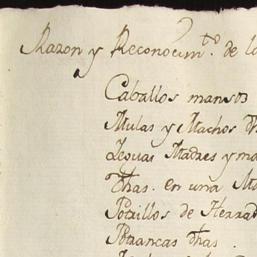 Razon y Reconocim.to de la
Caballos mansos
Mulas y Machos
Yeguas Madres y ma
Dhas. en una Ma
Potrillos de Herrad
Potrancas dhas.